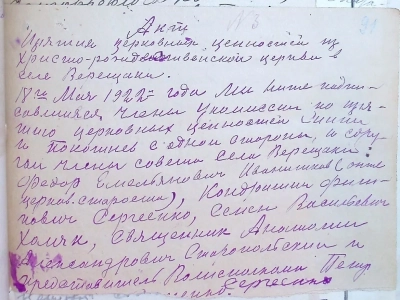 Акт
Изъятия церковных ценностей из
Христо-рождественской церкви в
селе Верещаки.
18го Мая 1922 года Мы ниже подпи-
савшиеся члены укомиссии по изъ-
ятию церковных ценностей
и с одной стороны, и с дру-
гой члены совета села Верещаки:
Федор Емельянович Иванишков (он же
церков. староста), Кондратий Филип-
пович Сергеенко, Семен Васильевич
Хомяк, священник Анатолий
Александрович Ставопольский и
представитель Волисполкома Петр
Сергеенко